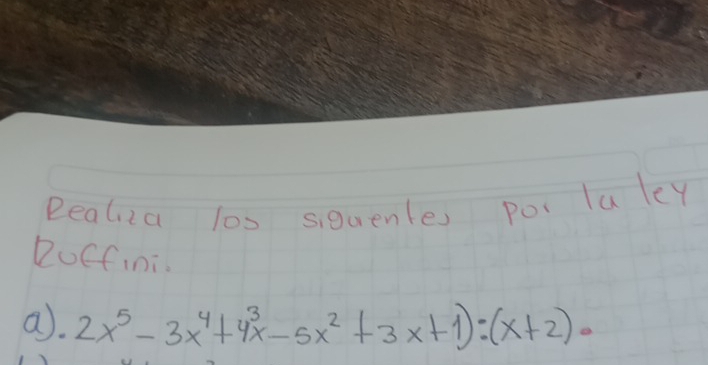 Realiza los siguentes por la ley
Ruffini.
a). 2x⁵ - 3x⁴ + 4x³ - 5x² + 3x + 1) : (x + 2).